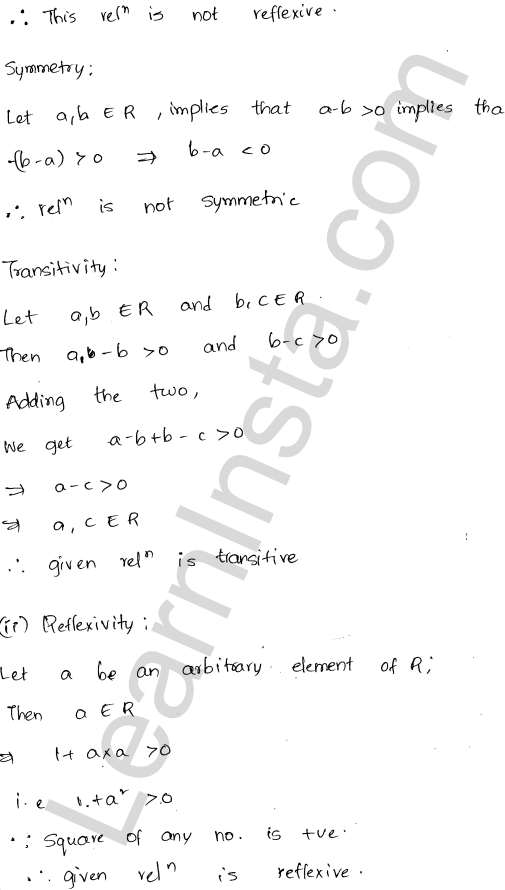 ∴ This relⁿ is not reflexive.
Symmetry:
Let a,b ∈ R , implies that a-b >0 implies tha
-(b-a) > 0 ⇒ b-a < 0
∴ relⁿ is not symmetric
Transitivity:
Let a,b ∈ R and b,c ∈ R.
Then a,b-b >0 and b-c >0
Adding the two,
We get a-b+b-c >0
⇒ a-c>0
⇒ a, c ∈ R
∴ given relⁿ is transitive
(ii) Reflexivity:
Let a be an arbitrary element of R;
Then a ∈ R
⇒ 1+ a×a >0
i.e 1+a² >0
∵ Square of any no. is +ve.
∴ given relⁿ is reflexive.
LearnInsta.com